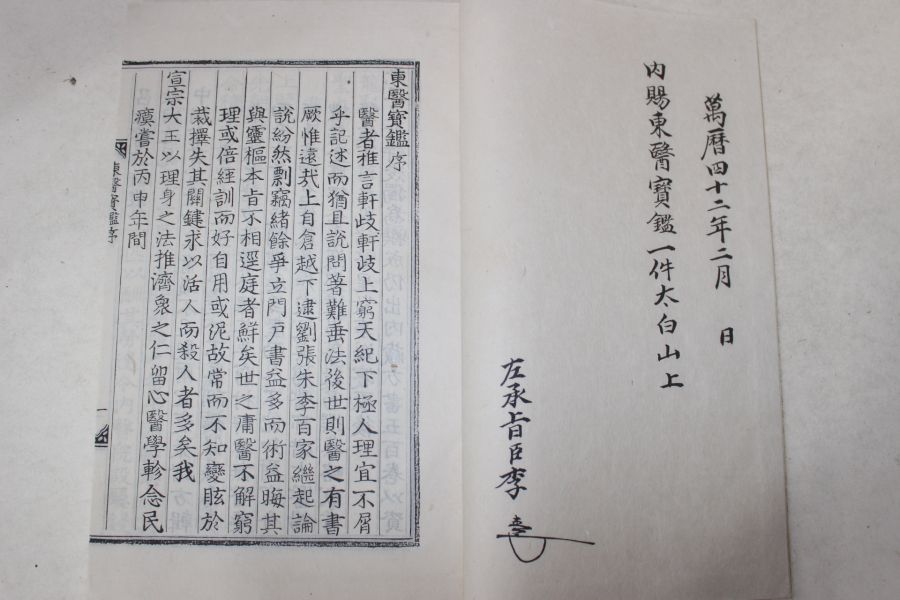 萬曆四十二年二月 日
内賜東醫寶鑑一件太白山上
左承旨臣李
東醫寶鑑序
醫者雅言軒歧軒歧上窮天紀下極人理宜不屑
乎記述而猶且說問著難垂法後世則醫之有書
厥惟遠哉上自倉越下逮劉張朱李百家繼起論
說紛然剽竊緒餘爭立門户書益多而術益晦其
與靈樞本旨不相逕庭者鮮矣世之庸醫不解窮
理或倍經訓而好自用或泥故常而不知變眩於
裁擇失其關鍵求以活人而殺人者多矣我
宣宗大王以理身之法推濟衆之仁留心醫學軫念民
瘼嘗於丙申年間
東醫寶鑑序
一